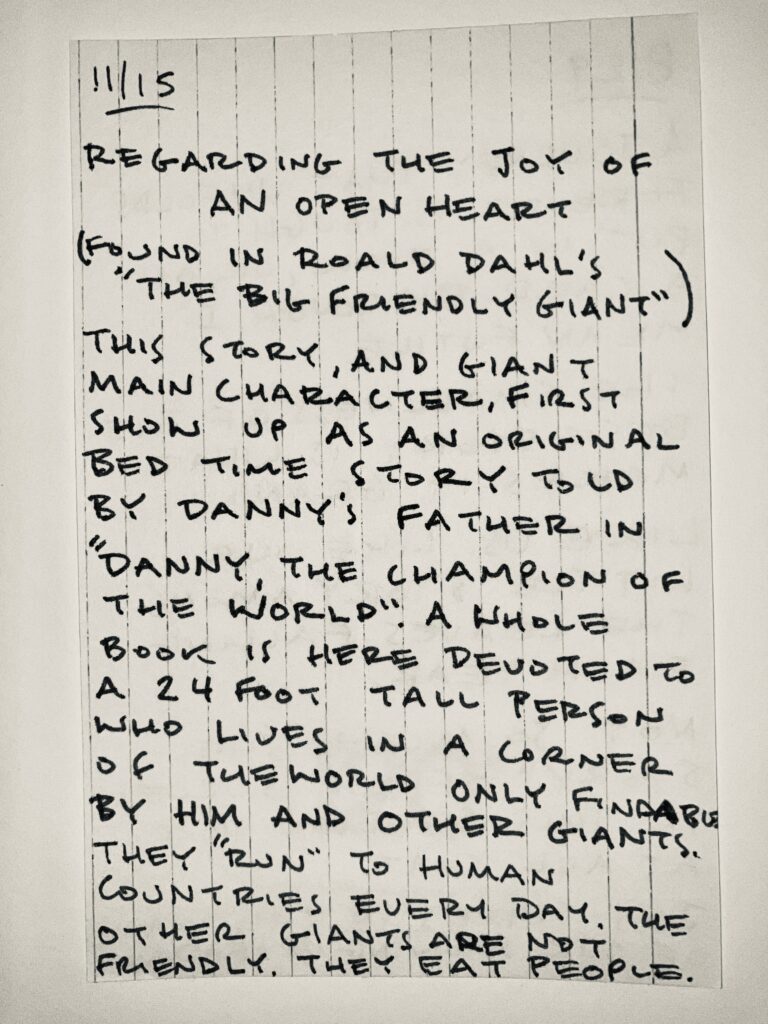 11/15
REGARDING THE JOY OF
AN OPEN HEART
(FOUND IN ROALD DAHL'S
"THE BIG FRIENDLY GIANT")
THIS STORY, AND GIANT
MAIN CHARACTER, FIRST
SHOW UP AS AN ORIGINAL
BED TIME STORY TOLD
BY DANNY'S FATHER IN
"DANNY, THE CHAMPION OF
THE WORLD". A WHOLE
BOOK IS HERE DEVOTED TO
A 24 FOOT TALL PERSON
WHO LIVES IN A CORNER
OF THE WORLD ONLY FINDABLE
BY HIM AND OTHER GIANTS.
THEY "RUN" TO HUMAN
COUNTRIES EVERY DAY. THE
OTHER GIANTS ARE NOT
FRIENDLY. THEY EAT PEOPLE.